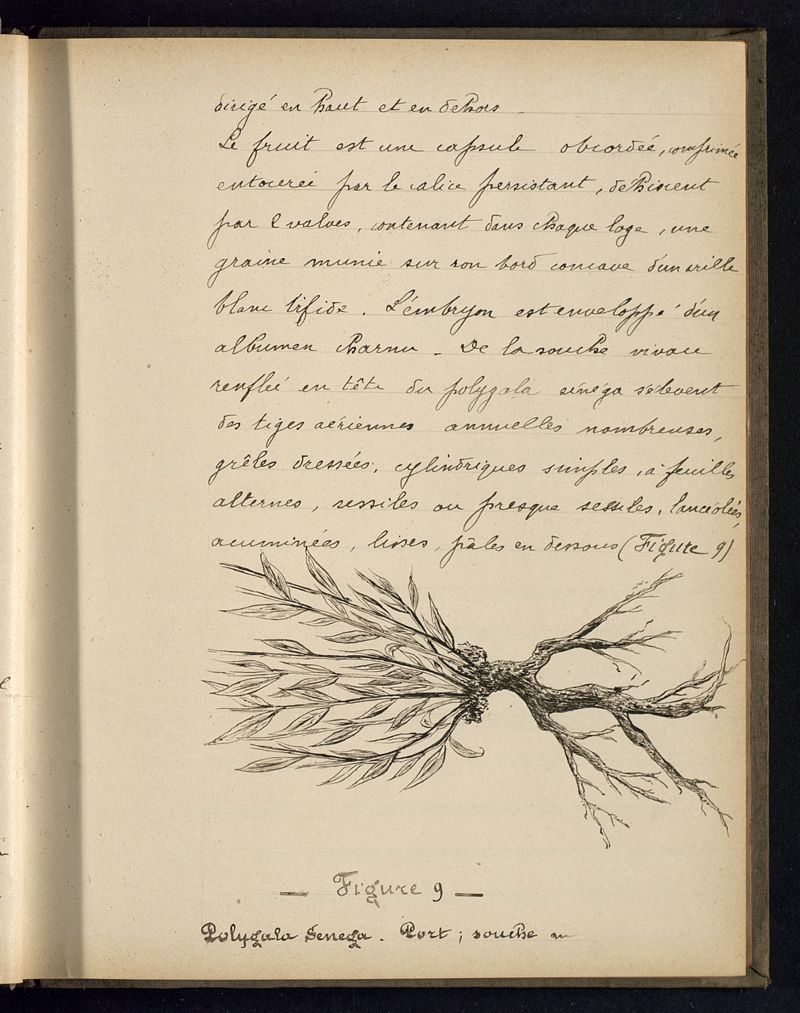 dirigé en haut et en dehors
Le fruit est une capsule obcordée, comprimée
entourée par le calice persistant, déhiscent
par 2 valves, contenant dans chaque loge, une
graine munie sur son bord concave d'un arille
blanc bifide. L'embryon est enveloppé d'un
albumen charnu - De la souche vivace
renflée en tête du polygala sénéga s'élèvent
des tiges aériennes annuelles nombreuses,
grêles dressées, cylindriques simples, à feuilles
alternes, sessiles ou presque sessiles, lancéolées,
acuminées, lisses, pâles en dessous (Figure 9)
— Figure 9 —
Polygala Senega. Port; souche